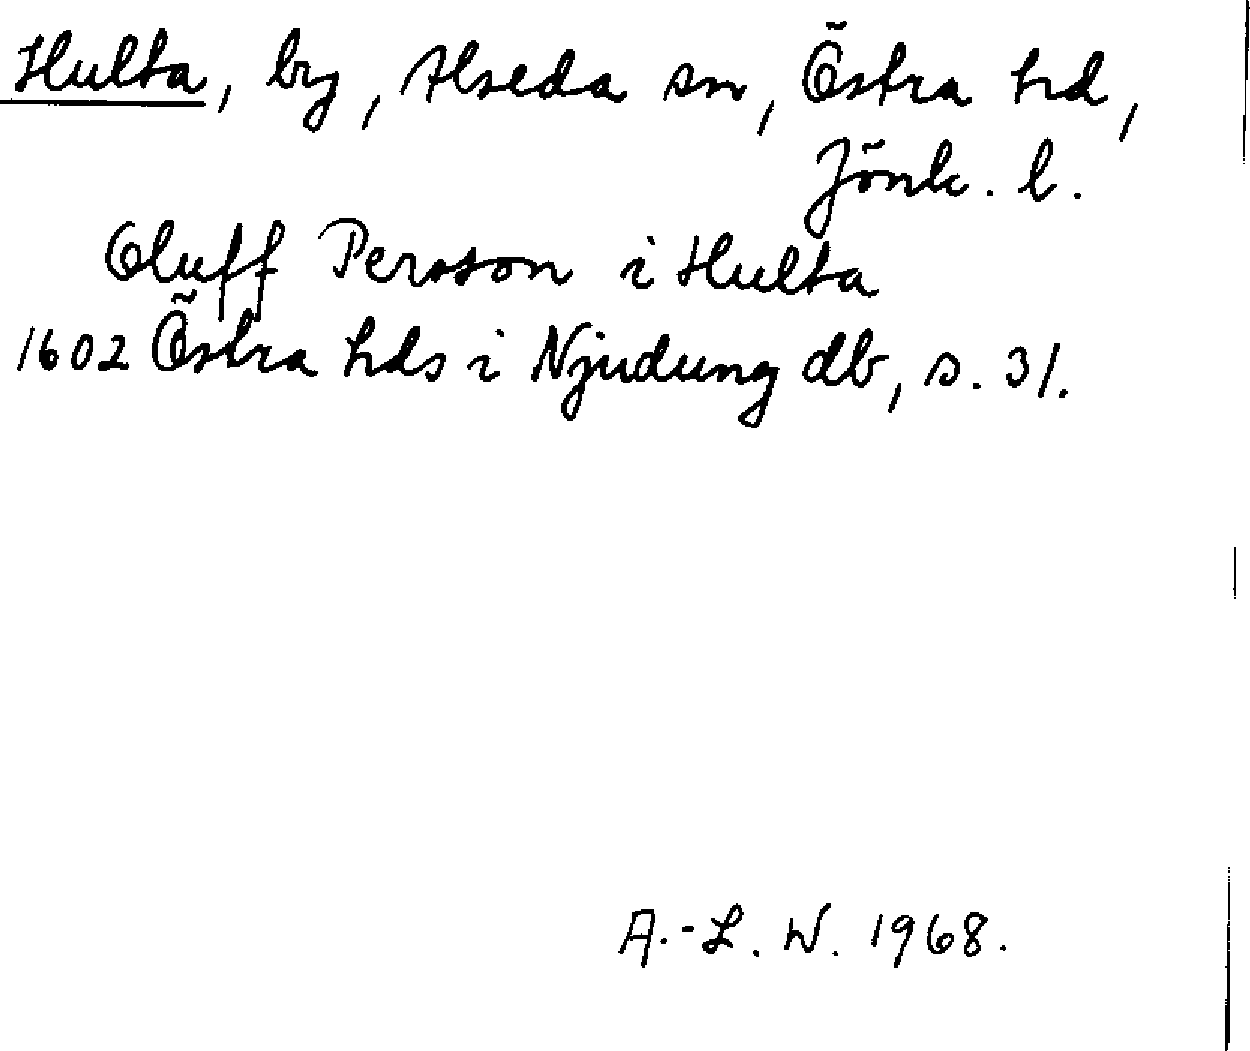 Hulta, by, Alseda sn, Östra hd,
Jönk. l.
Oluff Persson i Hulta
1602 Östra hds i Njudung db, s. 31.
A.-L. W. 1968.